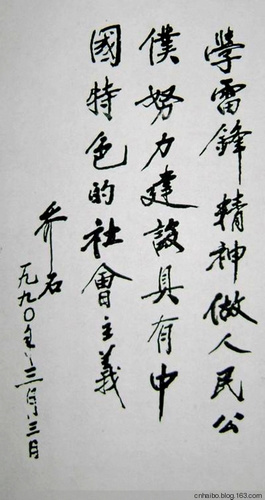 學雷鋒精神做人民公
僕努力建設具有中
國特色的社會主義
乔石
一九九〇年三月三日
cnhaibo.blog.163.com